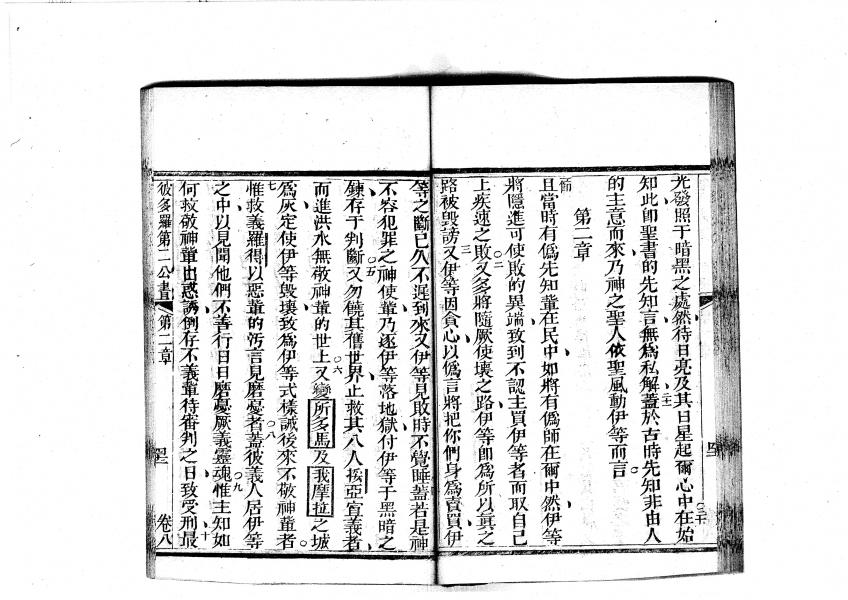 光發照于暗黑之處然待日亮及其日星起爾心中在始
知此卽聖書的先知言無為私解蓋於古時先知非由人
的主意而來乃神之聖人依聖風動伊等而言
第二章
且當時有偽先知輩在民中如將有偽師在爾中然伊等
將隱進可使敗的異端致到不認主買伊等者而取自己
上疾速之敗又多將隨厥使壞之路伊等卽為所以眞之
路被毀謗又伊等因貪心以偽言將把你們身為賣買伊
等之斷已久不遲到來又伊等見敗時不覺睡蓋若是神
不容犯罪之神使輩乃逐伊等落地獄付伊等于黑暗之
鍊存于判斷又勿饒其舊世界止救其八人挨亞宣義者
而進洪水無敬神輩的世上又變所多馬及我摩拉之城
為灰定使伊等毀壞致為伊等式樣誡後來不敬神輩者
惟救義羅得以惡輩的污言見磨憂者蓋彼義人居伊等
之中以見聞他們不善行日日磨憂厥義靈魂惟主知如
何救敬神輩出惑誘倒存不義輩待審判之日致受刑最
彼多羅第二公書 第二章 卷八